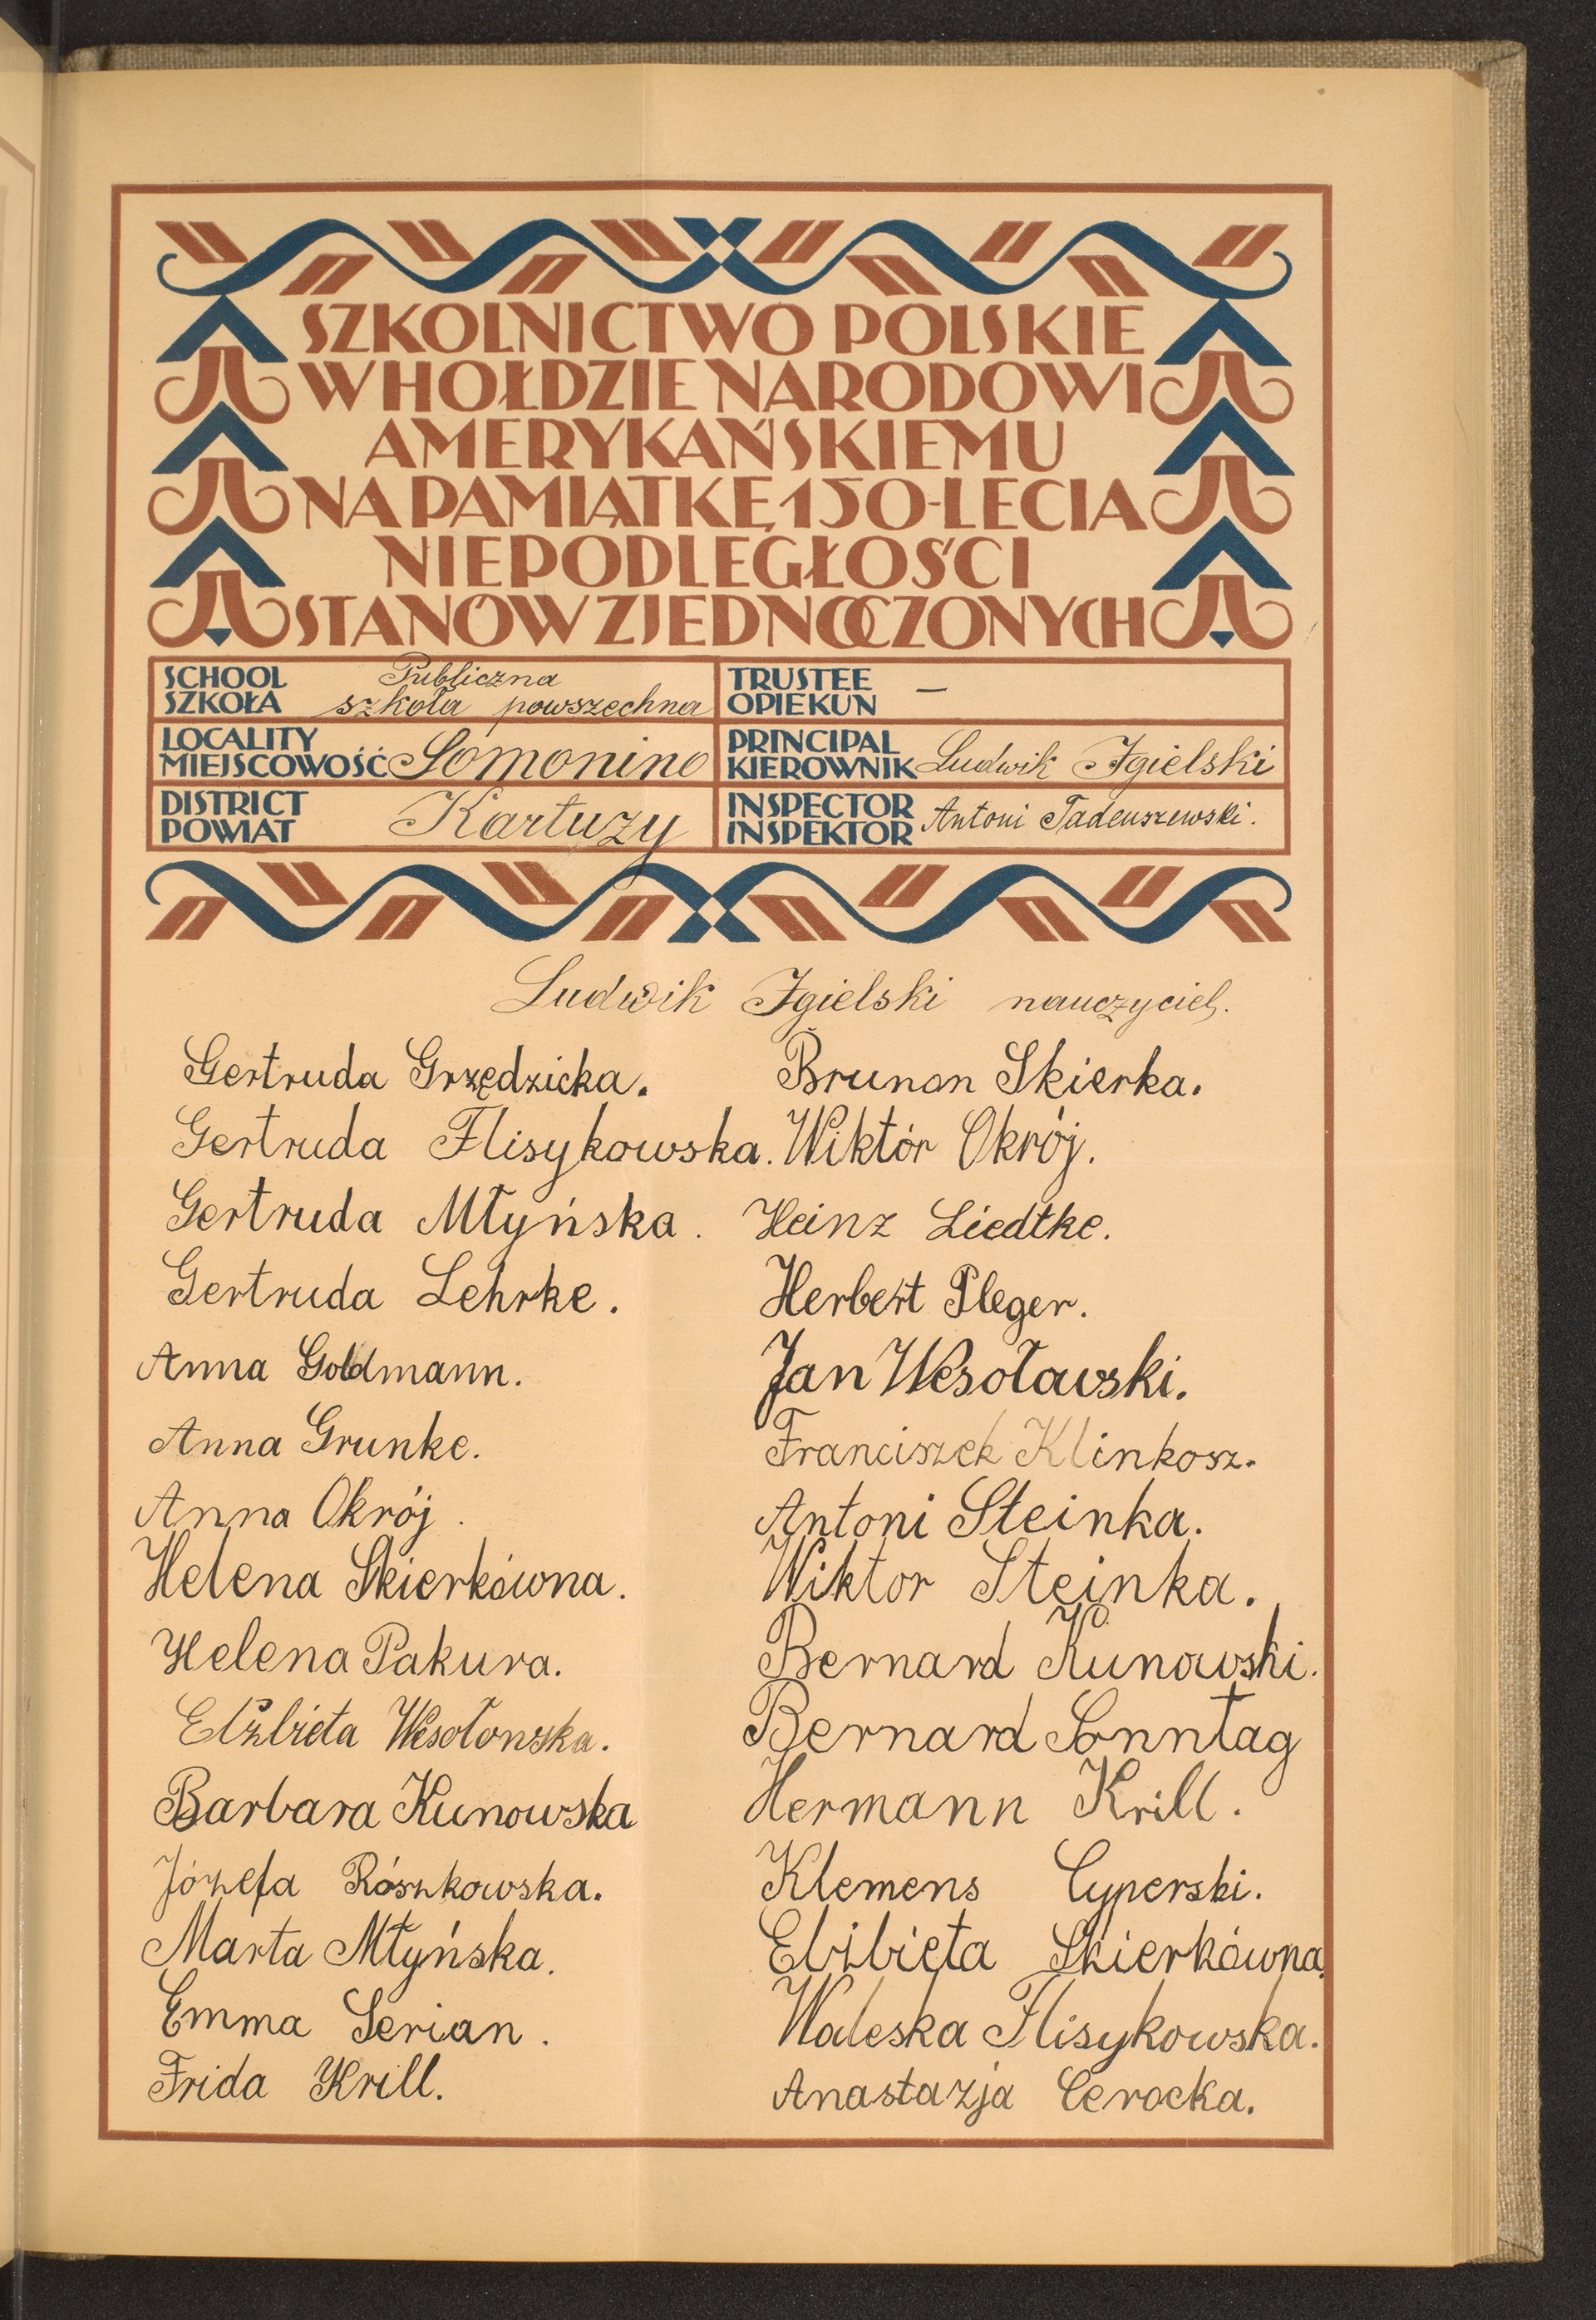 SZKOLNICTWO POLSKIE
W HOŁDZIE NARODOWI
AMERYKAŃSKIEMU
NA PAMIĄTKĘ 150-LECIA
NIEPODLEGŁOŚCI
STANÓW ZJEDNOCZONYCH
SCHOOL
SZKOŁA
Publiczna
szkoła powszechna
TRUSTEE
OPIEKUN
—
LOCALITY
MIEJSCOWOŚĆ
Somonino
PRINCIPAL
KIEROWNIK
Ludwik Igielski
DISTRICT
POWIAT
Kartuzy
INSPECTOR
INSPEKTOR
Antoni Tadeuszewski.
Ludwik Igielski nauczyciel.
Gertruda Grzędzicka.
Gertruda Flisykowska.
Gertruda Młyńska.
Gertruda Lehrke.
Anna Goldmann.
Anna Grunke.
Anna Okrój.
Helena Skierkówna.
Helena Pakura.
Elżbieta Wesołowska.
Barbara Kunowska
Józefa Rószkowska.
Marta Młyńska.
Emma Serian.
Frida Krill.
Brunon Skierka.
Wiktór Okrój.
Heinz Liedtke.
Herbert Pleger.
Jan Wesołowski.
Franciszek Klinkosz.
Antoni Steinka.
Wiktor Steinka.
Bernard Kunowski.
Bernard Sonntag
Hermann Krill.
Klemens Cyperski.
Elżbieta Skierkówna.
Waleska Flisykowska.
Anastazja Cerocka.